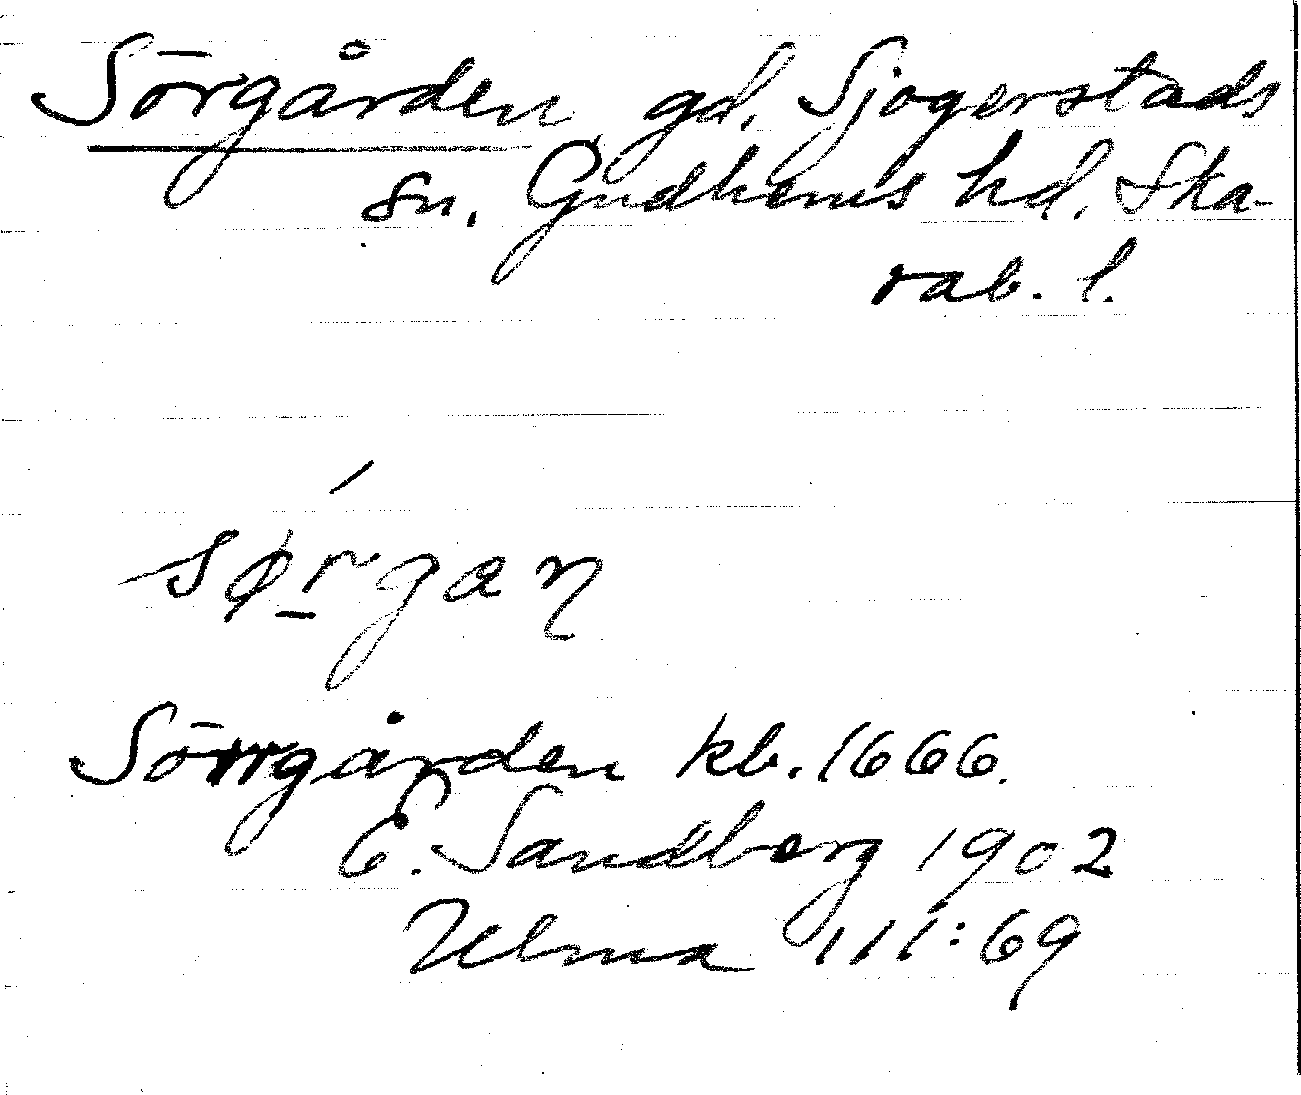 Sörgården gd. Sjogerstads
sn. Gudhems hd. Ska-
rab. l.
sørgaŋ
Sörrgården kb. 1666.
E. Sandberg 1902
Ulma 111:69